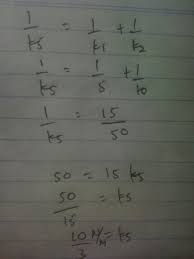 1/k5 = 1/k1 + 1/k2
1/k5 = 1/5 + 1/10
1/k5 = 15/50
50 = 15 k5
50/15 = k5
10/3 N/m = k5